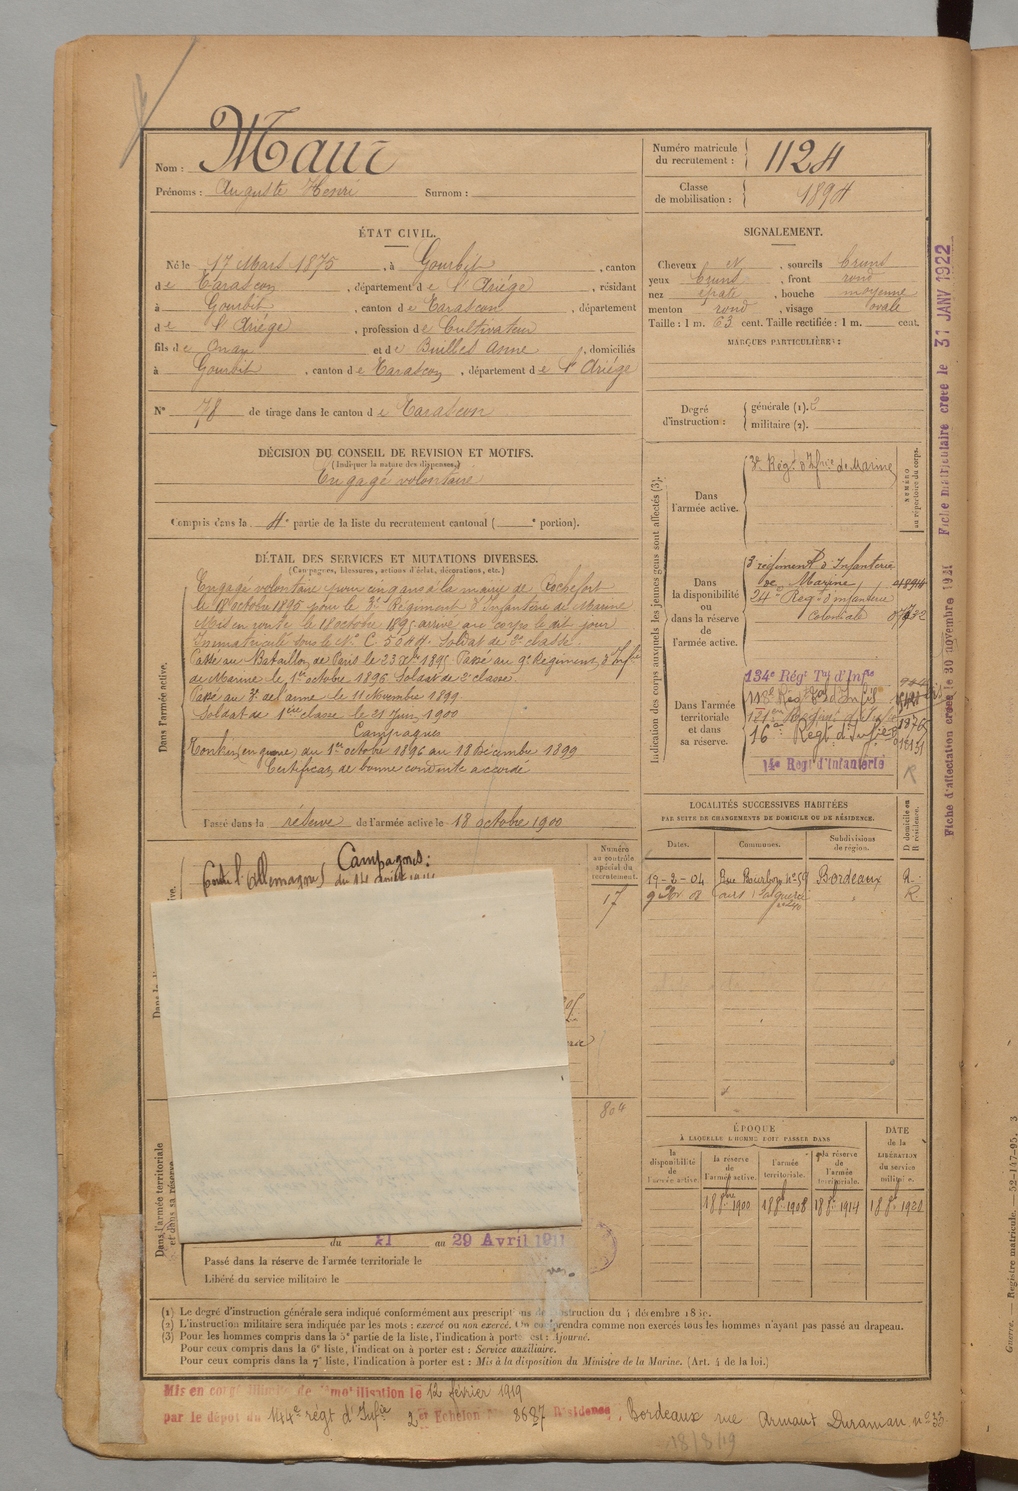 Nom : Maur
Prénoms : Auguste Henri Surnom :
Numéro matricule du recrutement : 1124
Classe de mobilisation : 1894
ÉTAT CIVIL.
Né le 17 Mars 1875, à Gourbit, canton
de Tarascon, département de l'Ariége, résidant
à Gourbit, canton de Tarascon, département
de l'Ariége, profession de Cultivateur
fils de et de Builles Anne, domiciliés
à Gourbit, canton de Tarascon, département de l'Ariége
N° 78 de tirage dans le canton de Tarascon
SIGNALEMENT.
Cheveux N, sourcils bruns
yeux bruns, front rond
nez épaté, bouche moyenne
menton rond, visage ovale
Taille : 1 m. 63 cent. Taille rectifiée : 1 m. cent.
MARQUES PARTICULIÈRES :
Degré d'instruction : générale (1). 2
militaire (2).
DÉCISION DU CONSEIL DE REVISION ET MOTIFS.
(Indiquer la nature des dispenses.)
Engagé volontaire
Compris dans la 4e partie de la liste du recrutement cantonal ( e portion).
DÉTAIL DES SERVICES ET MUTATIONS DIVERSES.
(Campagnes, blessures, actions d'éclat, décorations, etc.)
Dans l'armée active.
Engagé volontaire pour cinq ans à la mairie de Rochefort
le 18 octobre 1895 pour le 3e Régiment d'Infanterie de Marine
Mis en route le 18 octobre 1895 arrivé au corps le dit jour
Immatriculé sous le N° C 5044. Soldat de 2e classe.
Passé au Bataillon de Paris le 23 Xbre 1895. Passé au 9e Régiment d'Infie
de Marine le 1er octobre 1896 Soldat de 2e classe.
Passé au 3e de l'arme le 11 Novembre 1899
Soldat de 1ère classe le 21 Juin 1900
Campagnes
Tonkin, en guerre, du 1er octobre 1896 au 18 Décembre 1899
Certificat de bonne conduite accordé
Passé dans la réserve de l'armée active le 18 octobre 1900
Indication des corps auxquels les jeunes gens sont affectés (3).
NUMÉRO au répertoire du corps.
Dans l'armée active. 3e Régt d'Infrie de Marine
Dans la disponibilité ou dans la réserve de l'armée active.
3 régiment d'Infanterie
de Marine
24e Regt d'infanterie
Coloniale
Dans l'armée territoriale et dans sa réserve.
134e Régt Tal d'Infie
16e Regt d'Infie
14e Regt d'Infanterie
R
Fiche matriculaire créée le 31 JANV 1922
Fiche d'affectation créée le 30 novembre
Campagnes :
contre l'Allemagne du 14 août 1914
Numéro au contrôle spécial du recrutement.
17
804
LOCALITÉS SUCCESSIVES HABITÉES
PAR SUITE DE CHANGEMENTS DE DOMICILE OU DE RÉSIDENCE.
Dates. Communes. Subdivisions de région. D domicile ou R résidence.
19-2-04 Rue Bourbon n° 59 Bordeaux R.
R
ÉPOQUE
À LAQUELLE L'HOMME DOIT PASSER DANS
la disponibilité de l'armée active. la réserve de l'armée active. l'armée territoriale. la réserve de l'armée territoriale. DATE de la LIBÉRATION du service militaire.
18 8bre 1900 18 8bre 1908 18 8bre 1914 18 8bre 1921
Dans l'armée territoriale et dans sa réserve
du 21 au 29 Avril 1911
Passé dans la réserve de l'armée territoriale le
Libéré du service militaire le
(1) Le degré d'instruction générale sera indiqué conformément aux prescriptions de l'instruction du 4 décembre
(2) L'instruction militaire sera indiquée par les mots : exercé ou non exercé. On comprendra comme non exercés tous les hommes n'ayant pas passé au drapeau.
(3) Pour les hommes compris dans la 5e partie de la liste, l'indication à porter est : Ajourné.
Pour ceux compris dans la 6e liste, l'indication à porter est : Service auxiliaire.
Pour ceux compris dans la 7e liste, l'indication à porter est : Mis à la disposition du Ministre de la Marine. (Art. 4 de la loi.)
Mis en congé illimité de démobilisation le 12 février 1919
par le dépot du 144e régt d'Infie 2e Echelon 8687 Résidence, Bordeaux rue Armant n° 33.
18/8/19
Guerre. — Registre matricule. — 52-147-95. 3